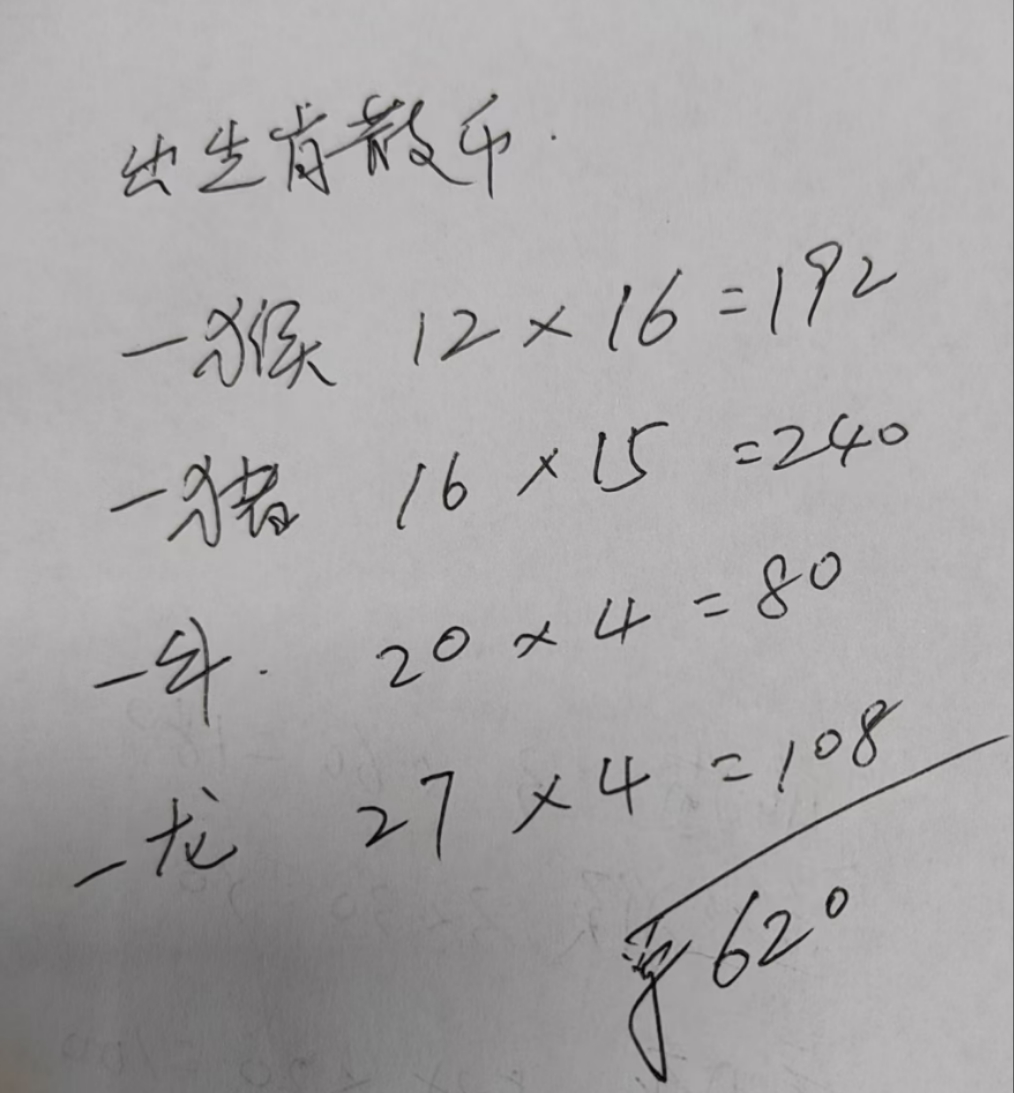 出生肖散币.
一猴 12×16=192
一猪 16×15=240
一牛. 20×4=80
一龙 27×4=108
620